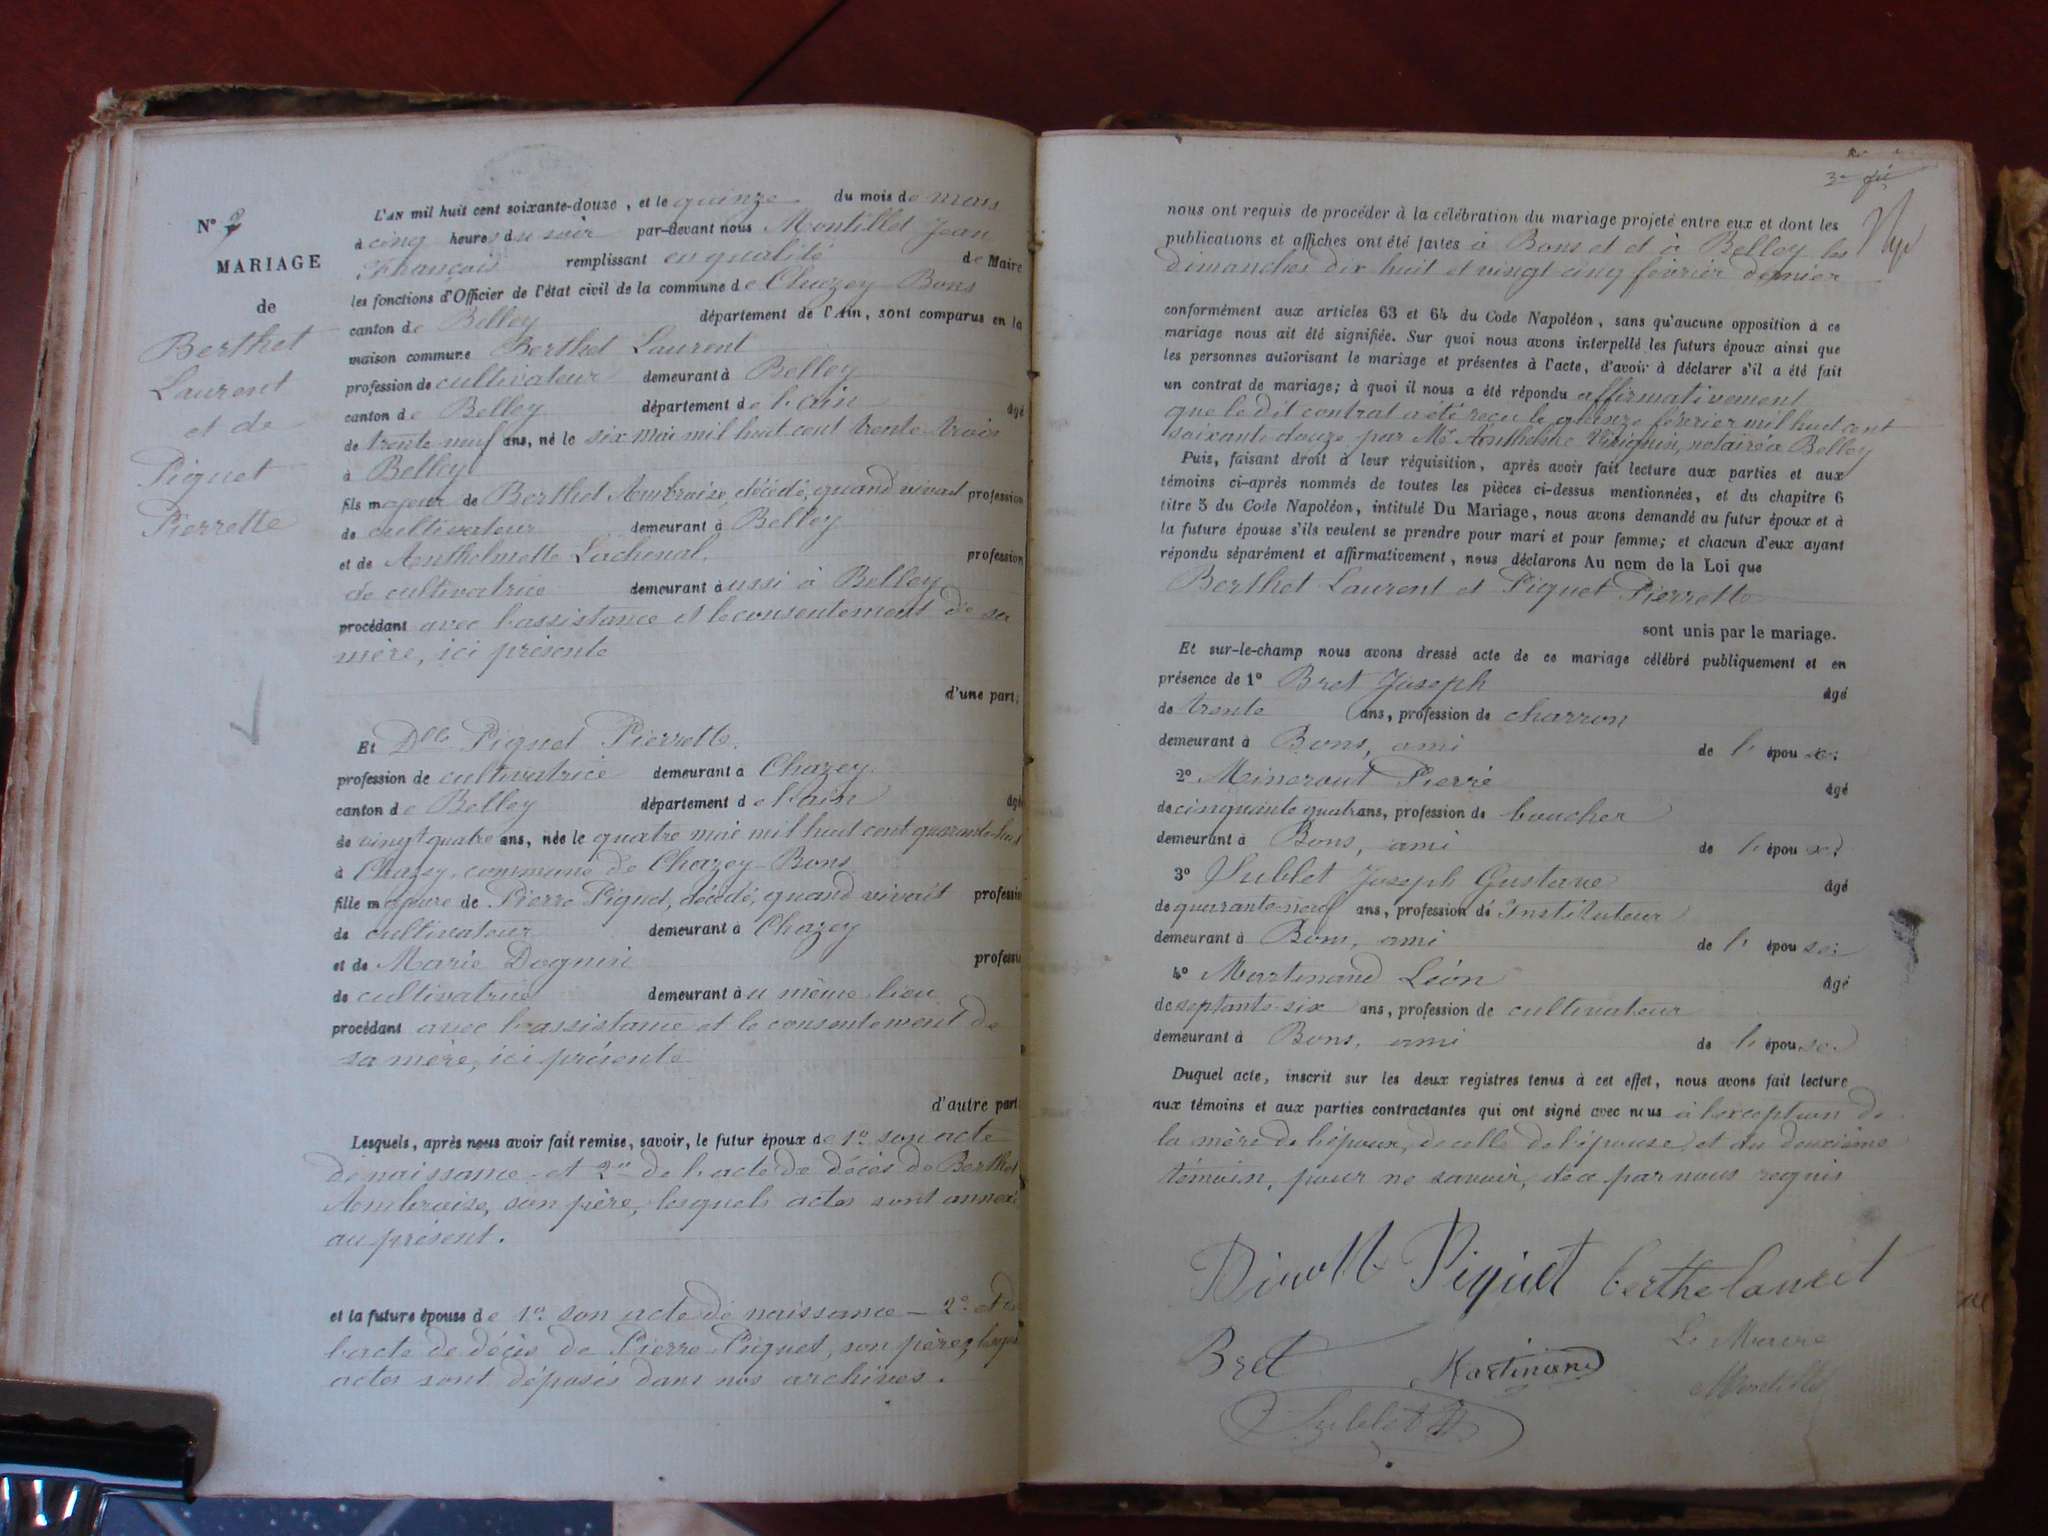 N° 2
MARIAGE
de
Berthet
Laurent
et de
Piguet
Pierrette
L'AN mil huit cent soixante-douze, et le quinze du mois de mars
à cinq heures du soir par-devant nous Montillet Jean
François remplissant en qualité de Maire
les fonctions d'Officier de l'état civil de la commune de Chazey-Bons
canton de Belley département de l'Ain, sont comparus en la
maison commune Berthet Laurent
profession de cultivateur demeurant à Belley
canton de Belley département de l'ain âgé
de trente-neuf ans, né le six mai mil huit cent trente-trois
à Belley
fils majeur de Berthet Ambroise, décédé, quand vivait profession
de cultivateur demeurant à Belley
et de Anthelmette Lachenal, profession
de cultivatrice demeurant aussi à Belley
procédant avec l'assistance et le consentement de sa
mère, ici présente
d'une part;
Et Dlle Piguet Pierrette
profession de cultivatrice demeurant à Chazey
canton de Belley département de l'ain âgé
de vingt quatre ans, née le quatre mai mil huit cent quarante-huit
à Chazey, commune de Chazey-Bons
fille majeure de Pierre Piguet, décédé, quand vivait professio
de cultivateur demeurant à Chazey
et de Marie Dognin professi
de cultivatrice demeurant au même lieu
procédant avec l'assistance et le consentement de
sa mère, ici présente
d'autre part
Lesquels, après nous avoir fait remise, savoir, le futur époux de 1° son acte
de naissance et 2° de l'acte de décès de Berthet
Ambroise, son père, lesquels actes sont annexé
au présent.
et la future épouse de 1° son acte de naissance — 2° et de
l'acte de décès de Pierre Piguet, son père,
actes sont déposés dans nos archives.
nous ont requis de procéder à la célébration du mariage projeté entre eux et dont les
publications et affiches ont été faites à Bons et et à Belley les
dimanches dix huit et vingt cinq février dernier
conformément aux articles 63 et 64 du Code Napoléon, sans qu'aucune opposition à ce
mariage nous ait été signifiée. Sur quoi nous avons interpellé les futurs époux ainsi que
les personnes autorisant le mariage et présentes à l'acte, d'avoir à déclarer s'il a été fait
un contrat de mariage; à quoi il nous a été répondu affirmativement
que le dit contrat a été reçu le quinze février mil huit cent
soixante-douze par Me Anthelme notaire à Belley
Puis, faisant droit à leur réquisition, après avoir fait lecture aux parties et aux
témoins ci-après nommés de toutes les pièces ci-dessus mentionnées, et du chapitre 6
titre 5 du Code Napoléon, intitulé Du Mariage, nous avons demandé au futur époux et à
la future épouse s'ils veulent se prendre pour mari et pour femme; et chacun d'eux ayant
répondu séparément et affirmativement, nous déclarons Au nom de la Loi que
Berthet Laurent et Piguet Pierrette
sont unis par le mariage.
Et sur-le-champ nous avons dressé acte de ce mariage célébré publiquement et en
présence de 1° Bret Joseph âgé
de trente ans, profession de charron
demeurant à Bons, ami de l'épouse;
2° Mineraut Pierre âgé
de cinquante quatre ans, profession de boucher
demeurant à Bons, ami de l'épouse;
3° Sublet Joseph Gustave âgé
de quarante-neuf ans, profession d'Instituteur
demeurant à Bons, ami de l'épouse;
4° Martinand Léon âgé
de septante-six ans, profession de cultivateur
demeurant à Bons, ami de l'épouse;
Duquel acte, inscrit sur les deux registres tenus à cet effet, nous avons fait lecture
aux témoins et aux parties contractantes qui ont signé avec nous à l'exception de
la mère de l'époux, de celle de l'épouse et du deuxième
témoin, pour ne savoir, de ce par nous requis
Piguet berthe lauret
Bret Martinand Le Maire
Montillet
Sublet